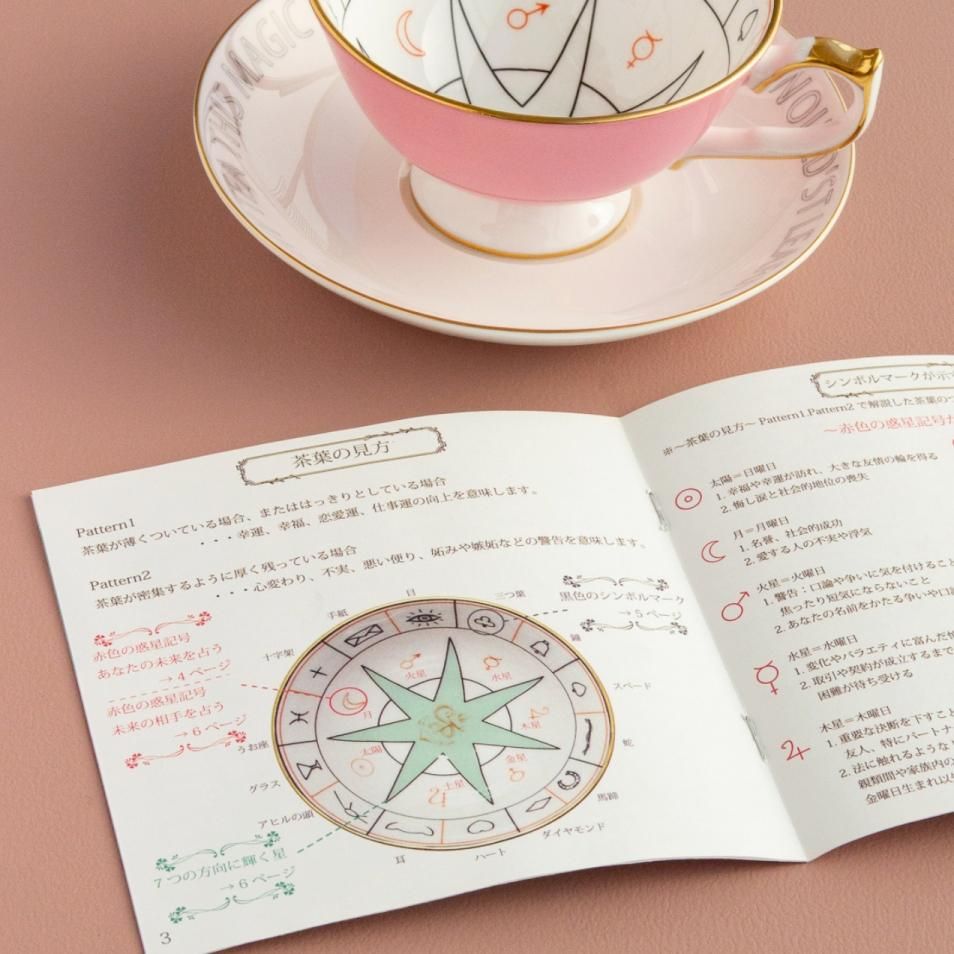 I'M THIS MAGIC
NOULD'ST LEA
茶葉の見方
Pattern1
茶葉が薄くついている場合、またははっきりとしている場合
・・・幸運、幸福、恋愛運、仕事運の向上を意味します。
Pattern2
茶葉が密集するように厚く残っている場合
・・・心変わり、不実、悪い便り、妬みや嫉妬などの警告を意味します。
赤色の惑星記号
あなたの未来を占う
→4ページ
赤色の惑星記号
未来の相手を占う
→6ページ
黒色のシンボルマーク
→5ページ
手紙
目
三つ葉
鐘
スペード
蛇
馬蹄
ダイヤモンド
ハート
耳
アヒルの頭
グラス
うお座
十字架
火星
水星
木星
金星
土星
太陽
月
7つの方向に輝く星
→6ページ
3
シンボルマークが示す
※〜茶葉の見方〜Pattern1,Pattern2で解説した茶葉のつ
〜赤色の惑星記号が
太陽=日曜日
1. 幸福や幸運が訪れ、大きな友情の輪を得る
2. 悔し涙と社会的地位の喪失
月=月曜日
1. 名誉、社会的成功
2. 愛する人の不実や浮気
火星=火曜日
1. 警告:口論や争いに気を付けること
焦ったり短気にならないこと
2. あなたの名前をかたる争いや口論
水星=水曜日
1. 変化やバラエティに富んだ
2. 取引や契約が成立するまで
困難が待ち受ける
木星=木曜日
1. 重要な決断を下すこと
友人、特にパートナ
2. 法に触れるような
親類間や家族内の
金曜日生まれ以